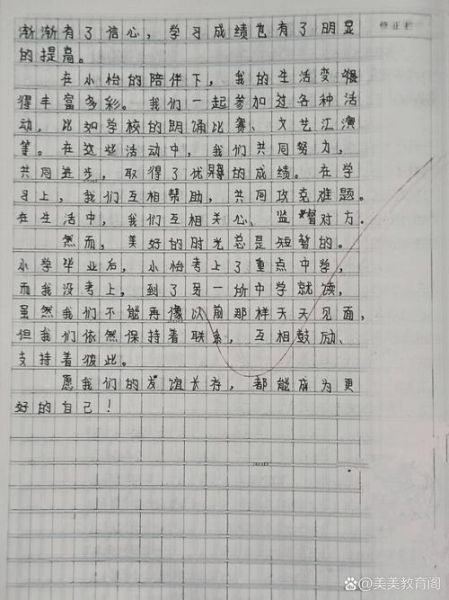 渐渐有了信心，学习成绩也有了明显
的提高。
在小怡的陪伴下，我的生活变得
得丰富多彩。我们一起参加过各种活
动，比如学校的朗诵比赛、文艺汇演
等。在这些活动中，我们共同努力，
共同进步，取得了优异的成绩。在学
习上，我们互相帮助，共同攻克难题。
在生活中，我们互相关心、监督对方。
然而，美好的时光总是短暂的。
小学毕业后，小怡考上了重点中学，
而我没考上，到了另一所中学就读，
虽然我们不能再像以前那样天天见面，
但我们依然保持着联系，互相鼓励、
支持着彼此。
愿我们的友谊长存，都能成为更
好的自己！
修正栏
美美教育阁